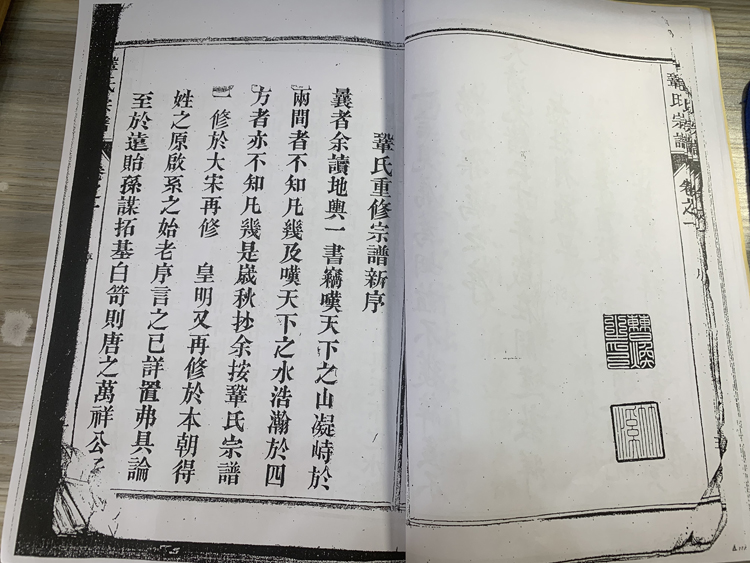 鞏氏宗譜
卷之一
鞏氏重修宗譜新序
曩者余讀地輿一書竊嘆天下之山凝峙於
兩間者不知凡幾及嘆天下之水浩瀚於四
方者亦不知凡幾是歲秋抄余按鞏氏宗譜
一修於大宋再修 皇明又再修於本朝得
姓之原啟系之始老序言之已詳置弗具論
至於遠貽孫謀拓基白笴則唐之萬祥公
氏宗譜